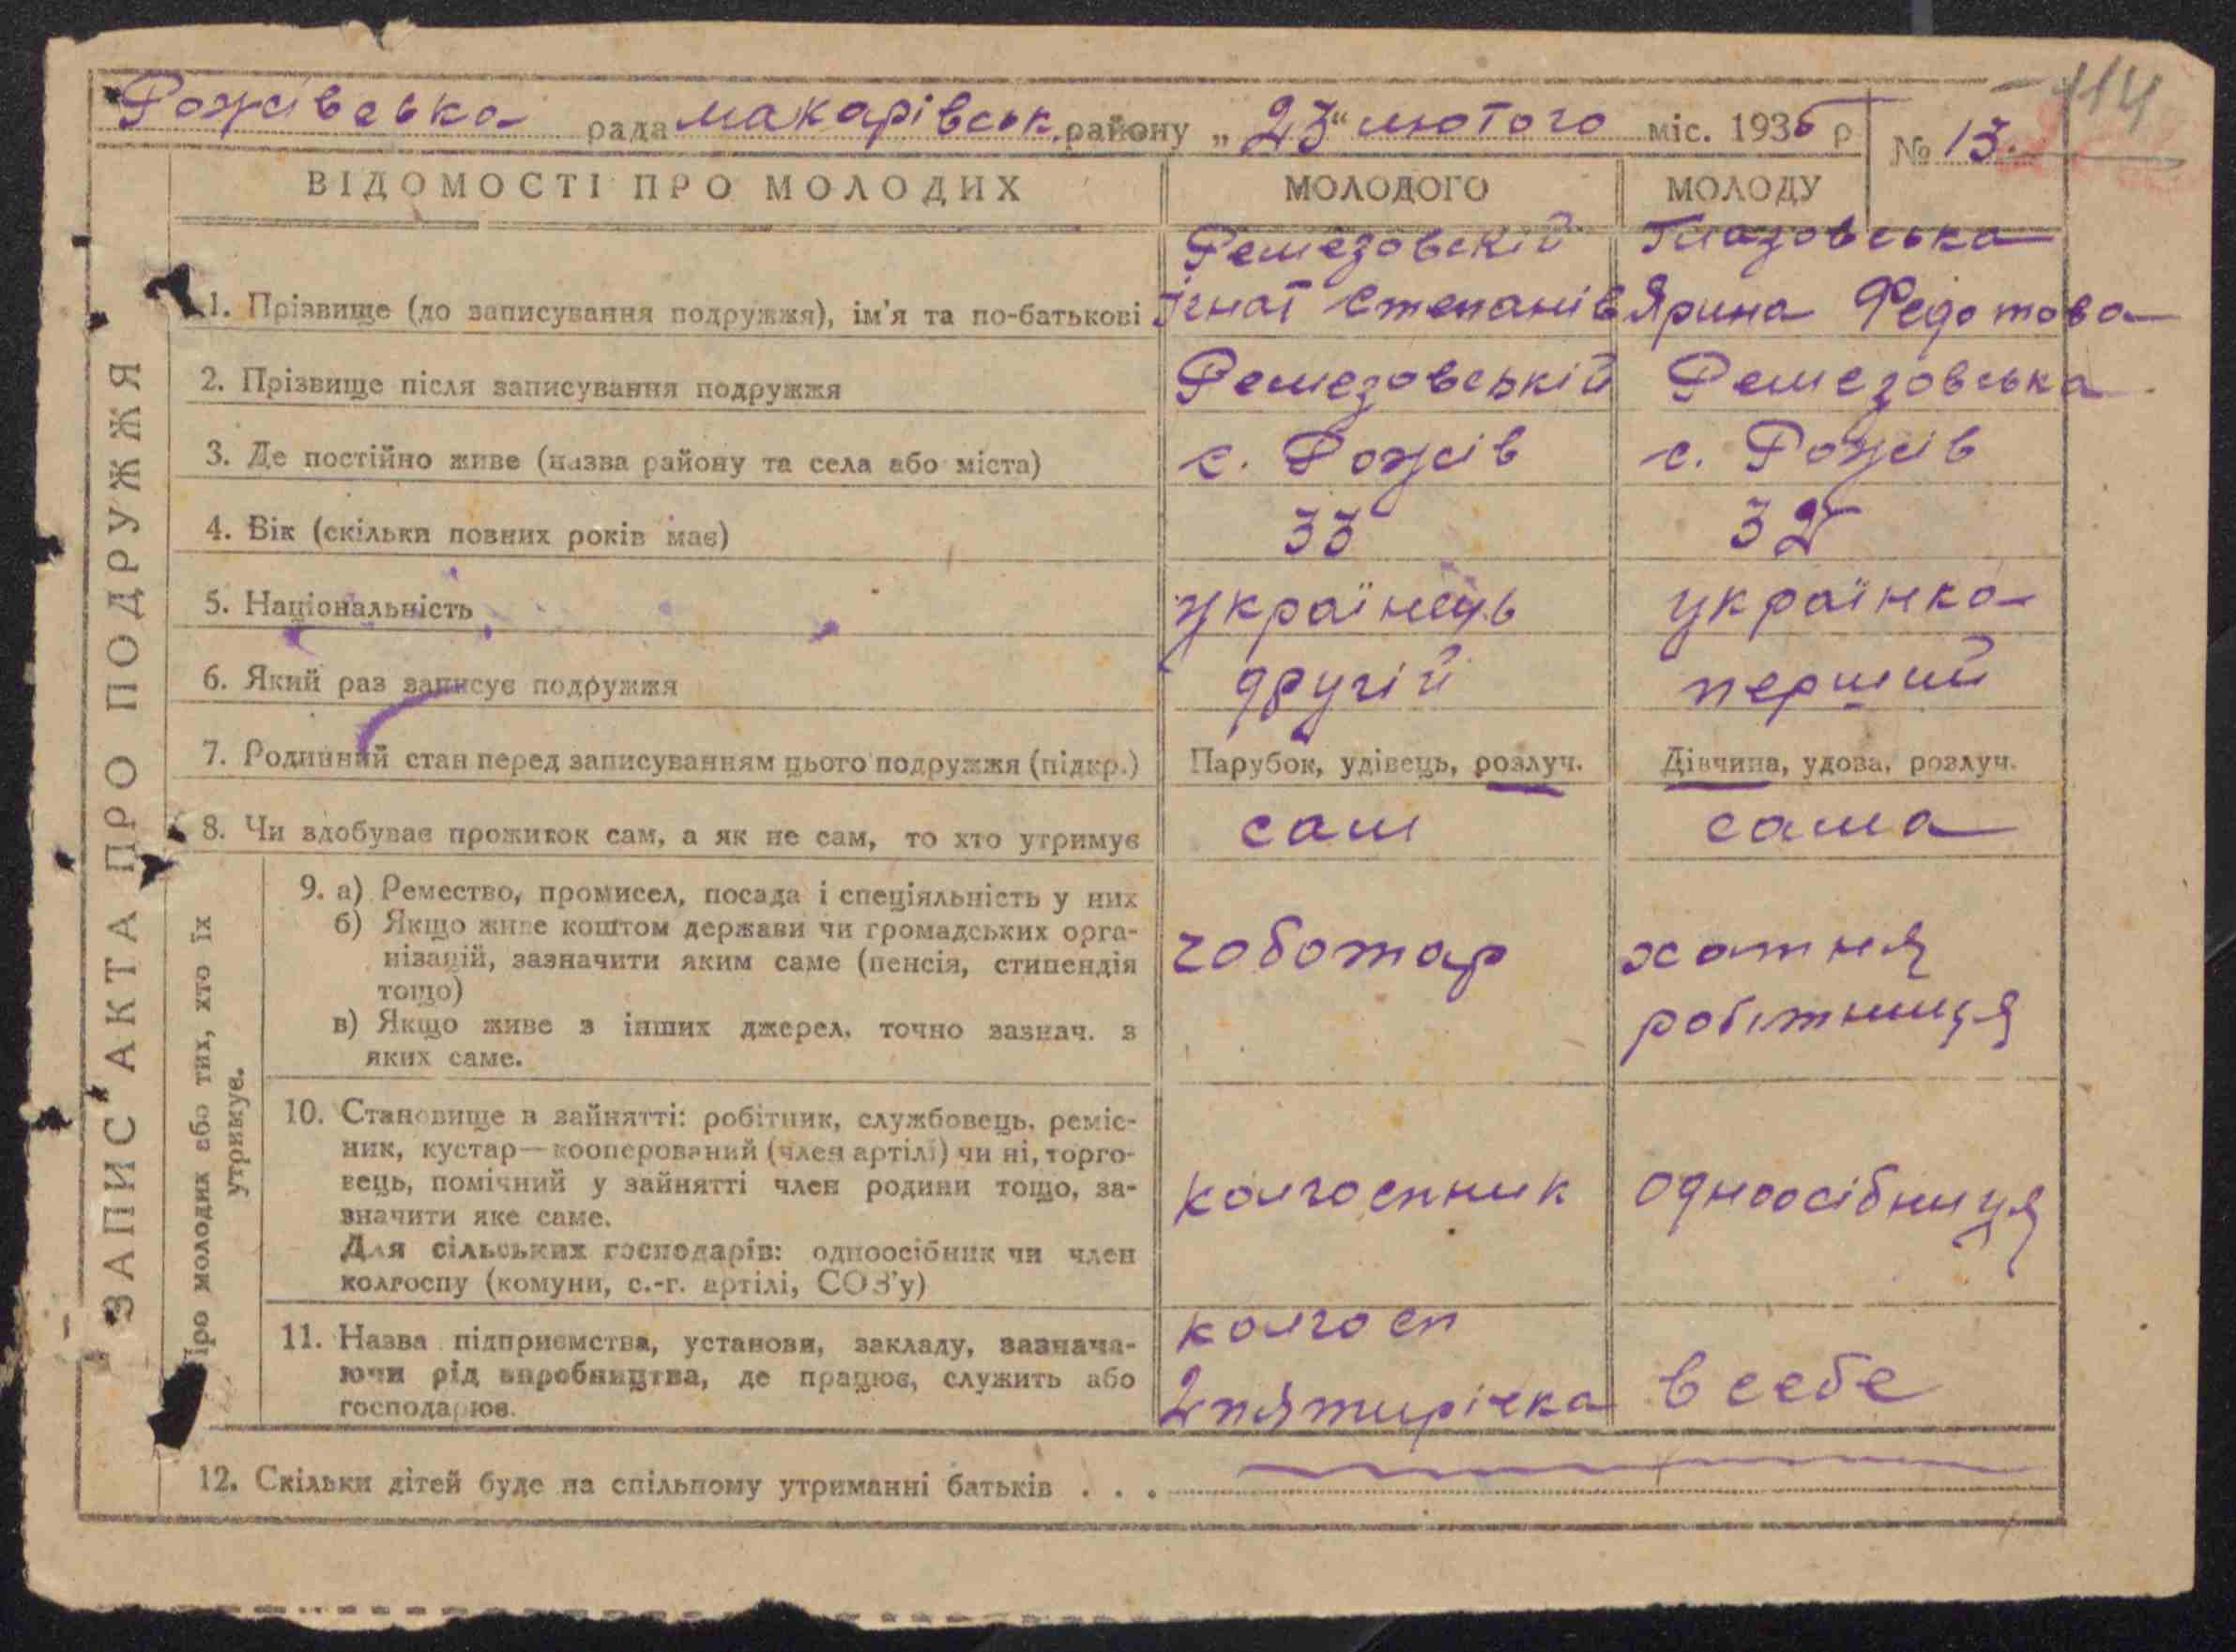 114
Рожівська рада макарівськ. району „ 23 “ лютого міс. 1935 р № 13.
ВІДОМОСТІ ПРО МОЛОДИХ МОЛОДОГО МОЛОДУ
Ремезовскій Глазовська
1. Прізвище (до записування подружжя), ім'я та по-батькові Ігнат Степанів Ярина Федотова
2. Прізвище після записування подружжя Ремезовській Ремезовська
3. Де постійно живе (назва району та села або міста) с. Рожів с. Рожів
4. Вік (скільки повних років має) 33 32
5. Національність українець українка
6. Який раз записує подружжя другій перший
7. Родинний стан перед записуванням цього подружжя (підкр.) Парубок, удівець, розлуч. Дівчина, удова, розлуч.
8. Чи здобуває прожиток сам, а як не сам, то хто утримує сам сама
9. а) Ремество, промисел, посада і спеціяльність у них
б) Якщо живе коштом держави чи громадських орга-
нізацій, зазначити яким саме (пенсія, стипендія чоботар хатня
тощо)
в) Якщо живе з інших джерел, точно зазнач. з робітниця
яких саме.
10. Становище в зайнятті: робітник, службовець, реміс-
ник, кустар—кооперований (член артілі) чи ні, торго-
вець, помічний у зайнятті член родини тощо, за- колгоспник одноосібниця
значити яке саме.
Для сільських господарів: одноосібник чи член
колгоспу (комуни, с.-г. артілі, СОЗ'у)
11. Назва підприємства, установи, закладу, зазнача- колгосп
ючи рід виробництва, де працює, служить або 2 пятирічка в себе
господарює.
12. Скільки дітей буде на спільному утриманні батьків . . .
ЗАПИС АКТА ПРО ПОДРУЖЖЯ
Про молодих або тих, хто їх
утримує.